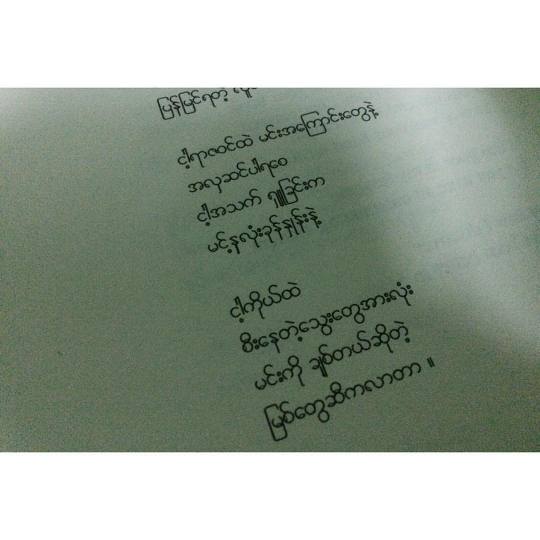 ပြန်မြင်ရတဲ့
ငါ့ရာဇဝင်ထဲ မင်းအကြောင်းတွေနဲ့
အလှဆင်ပါရစေ
ငါ့အသက် ရှူခြင်းက
မင့်နှလုံးခုန်နှုန်းနဲ့
ငါ့ကိုယ်ထဲ
စီးနေတဲ့သွေးတွေအားလုံး
မင်းကို ချစ်တယ်ဆိုတဲ့
မြစ်တွေဆီကလာတာ ။